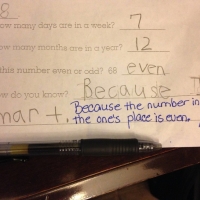 8
ow many days are in a week? 7
ow many months are in a year? 12
this number even or odd? 68 even
ow do you know? Because
mart.
Because the number in
the one's place is even.